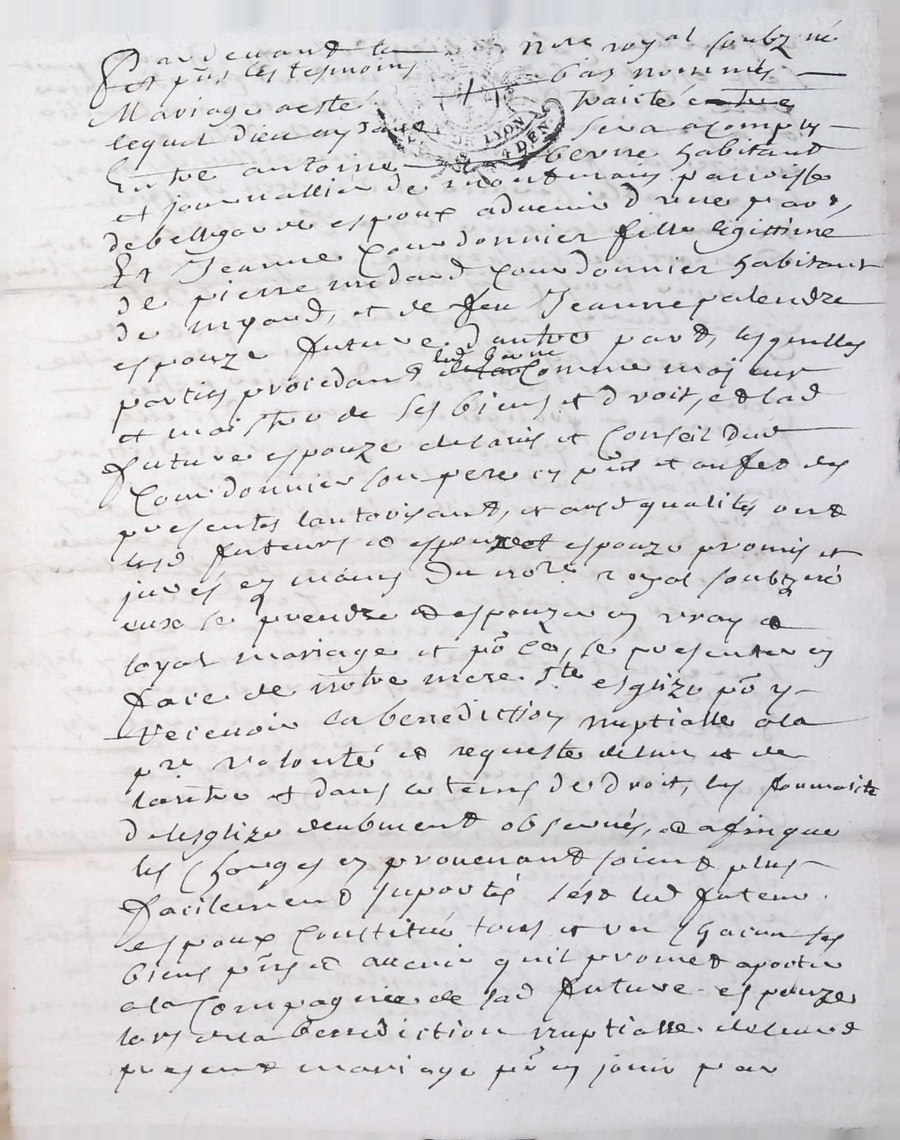 Pardevant le nore royal soubz né
et pnts les tesmoins bas nommés
Mariage a esté traité entre
lequel dieu aydant sera acomply
Entre antoine berne habitant
et journallier de montmain parroisse
de bellegarde espoux advenir d'une part,
Et Jeanne Courdonnier fille legittime
de pierre medard Courdonnier habitant
de et de feu Jeanne palandre
espouze future d'autre part, lesquelles
parties procedans led berne Comme majeur
et maistre de ses biens et droits, et lad
future espouze de lavis et Conseil dud
Courdonnier son pere cy pnt et au fet des
presentes lautorisant, et ausd qualités ont
lesd futeurs espoux et espouze promis et
jurés es mains du nore royal soubzné
eux se prendre et espouzer en vray et
loyal mariage et pr ce, se presenter en
face de notre mere Ste esglize pr y
recevoir la benediction nuptialle a la
pre volonté et requeste de lun et de
lautre et dans le tems de droit, les formalités
de lesglize deubment observés, et afin que
les Charges en provenant soient plus
facilement suportés sest led futeur
espoux Constitué tous et un Chacun ses
biens pnts et avenir quil promet aporter
a la Compagnie de lad future espouze
lors de la benediction nuptialle de leurd
present mariage pr en jouir par
DE LYON
DEN